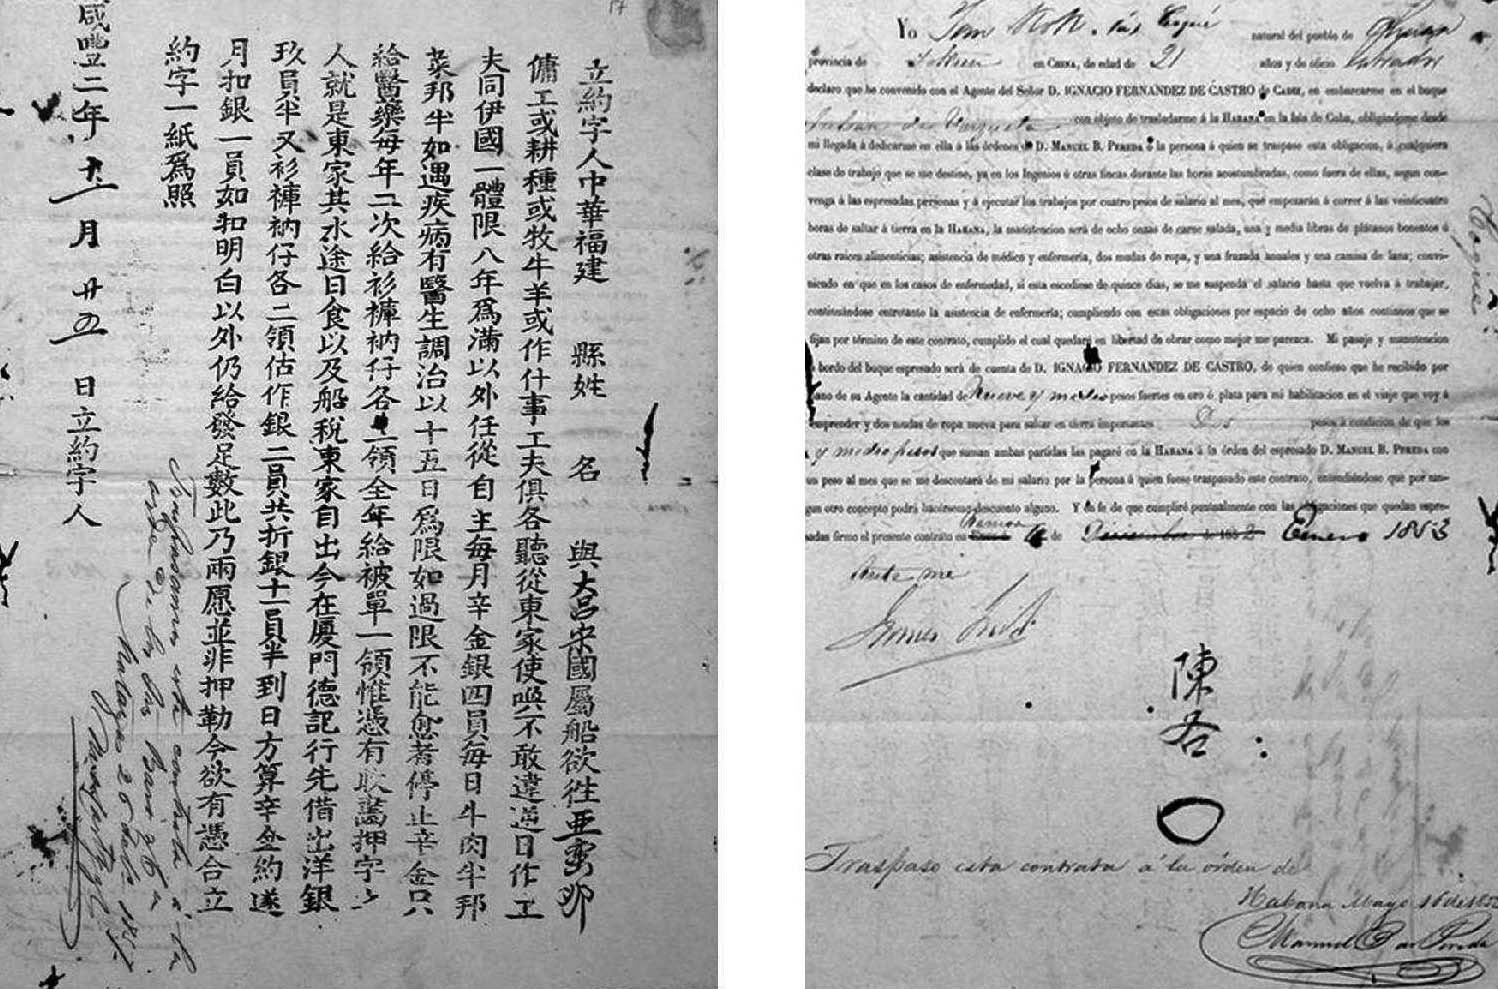 立約字人中華福建 縣姓 名 與大呂宋國屬船欲往亞灣那
傭工或耕種或牧牛羊或作什事工夫俱各聽從東家使喚不敢違逆日作工
夫同伊國一體限八年爲滿以外任從自主每月辛金銀四員每日牛肉半邦
菜邦半如遇疾病有醫生調治以十五日爲限如過限不能愈者停止辛金只
給醫藥每年二次給衫褲衲仔各二領全年給被單一領惟憑有收薦押字之
人就是東家其水途日食以及船税東家自出今在厦門德記行先借出洋銀
玖員半又衫褲衲仔各二領估作銀二員共折銀十一員半到日方算辛金約逐
月扣銀一員如扣明白以外仍給發足數此乃兩愿並非押勒今欲有憑合立
約字一紙爲照
咸豐二年 十二月 廿五 日立約字人
Traspasamos esta contrata à la
orden de los
Yo
natural del pueblo de
provincia de en CHINA, de edad de 21 años y de oficio labrador
declaro que he convenido con el Agente del Señor D. IGNACIO FERNANDEZ DE CASTRO de CADIZ, en embarcarme en el buque
con objeto de trasladarme á la HABANA en la Isla de Cuba, obligándome desde
mi llegada á dedicarme en ella á las órdenes de D. MANUEL B. PEREDA ó la persona á quien se traspase esta obligacion, á cualquiera
clase de trabajo que se me destine, ya en los Ingenios ú otras fincas durante las horas acostumbradas, como fuera de ellas, segun con-
venga á las espresadas personas y á ejecutar los trabajos por cuatro pesos de salario al mes, que empezarán á correr á las veinticuatro
horas de saltar á tierra en la HABANA, la manutencion será de ocho onzas de carne salada, una y media libras de plátanos boneatos ú
otras raices alimenticias; asistencia de médico y enfermería, dos mudas de ropa, y una frazada anuales y una camisa de lana; convi-
niendo en que en los casos de enfermedad, si esta escediese de quince dias, se me suspenda el salario hasta que vuelva á trabajar,
continuándose entretanto la asistencia de enfermería; cumpliendo con estas obligaciones por espacio de ocho años continuos que se
fijan por término de este contrato, cumplido el cual quedaré en libertad de obrar como mejor me parezca. Mi pasaje y manutencion
á bordo del buque espresado será de cuenta de D. IGNACIO FERNANDEZ DE CASTRO, de quien confieso que he recibido por
mano de su Agente la cantidad de Nueve y medio pesos fuertes en oro ó plata para mi habilitacion en el viaje que voy á
emprender y dos mudas de ropa nueva para saltar en tierra importantes Dos pesos á condicion de que los
y medio pesos que suman ambas partidas las pagaré en la HABANA á la órden del espresado D. MANUEL B. PEREDA con
un peso al mes que se me descontará de mi salario por la persona á quien fuese traspasado este contrato, entendiéndose que por nin-
gun otro concepto podrá hacérseme descuento alguno. Y en fe de que cumpliré puntualmente con las obligaciones que quedan espre-
sadas firmo el presente contrato en Diciembre de 1852 Enero 1853
Ante me
陳
Traspaso esta contrata á la órden de
Habana Mayo 16 de